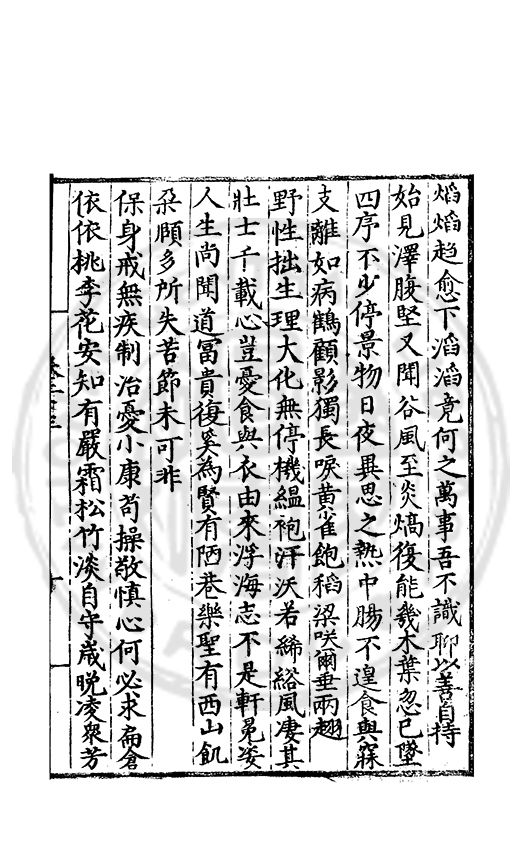 熖熖趋愈下滔滔竟何之萬事吾不識聊以善自持
始見澤腹堅又聞谷風至炎熇復能幾木葉忽已墜
四序不少停景物日夜異思之熱中腸不遑食與寐
支離如病鶴顧影獨長唳黄雀飽稻粱咲爾垂兩翅
野性拙生理大化無停機緼袍汙沃若絺綌風凄其
壯士千載心豈憂食與衣由來浮海志不是軒冕姿
人生尚聞道富貴復奚為賢有陋巷樂聖有西山飢
朶頤多所失苦節未可非
保身戒無疾制治憂小康苟操敬慎心何必求扁倉
依依桃李花安知有嚴霜松竹淡自守歲晚凌衆芳